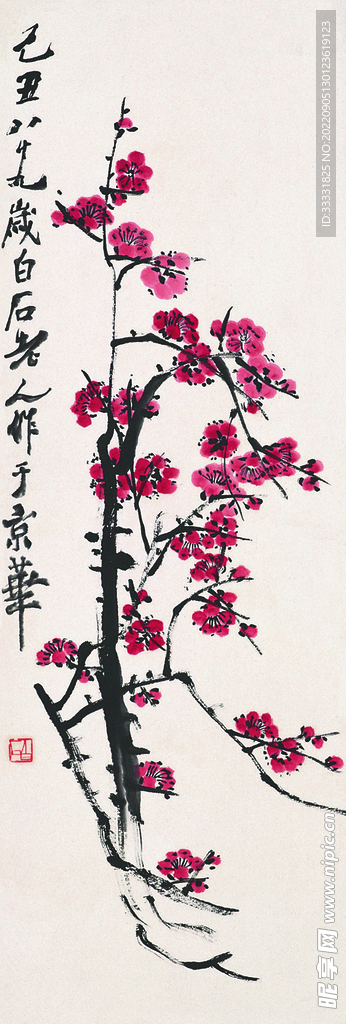 己丑八十九歲白石老人作于京華
ID:33331825 NO:20220905130123619123
昵享网 www.nipic.cn